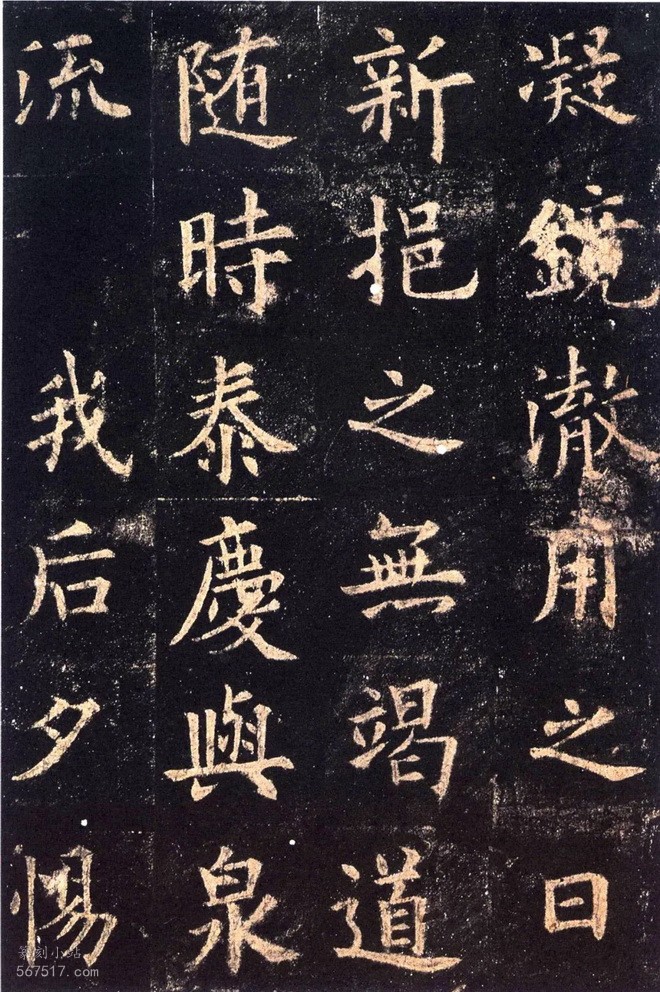 凝鏡澈用之日
新挹之無竭道
随時泰慶與泉
流 我后夕惕
篆刻小站
567517.com